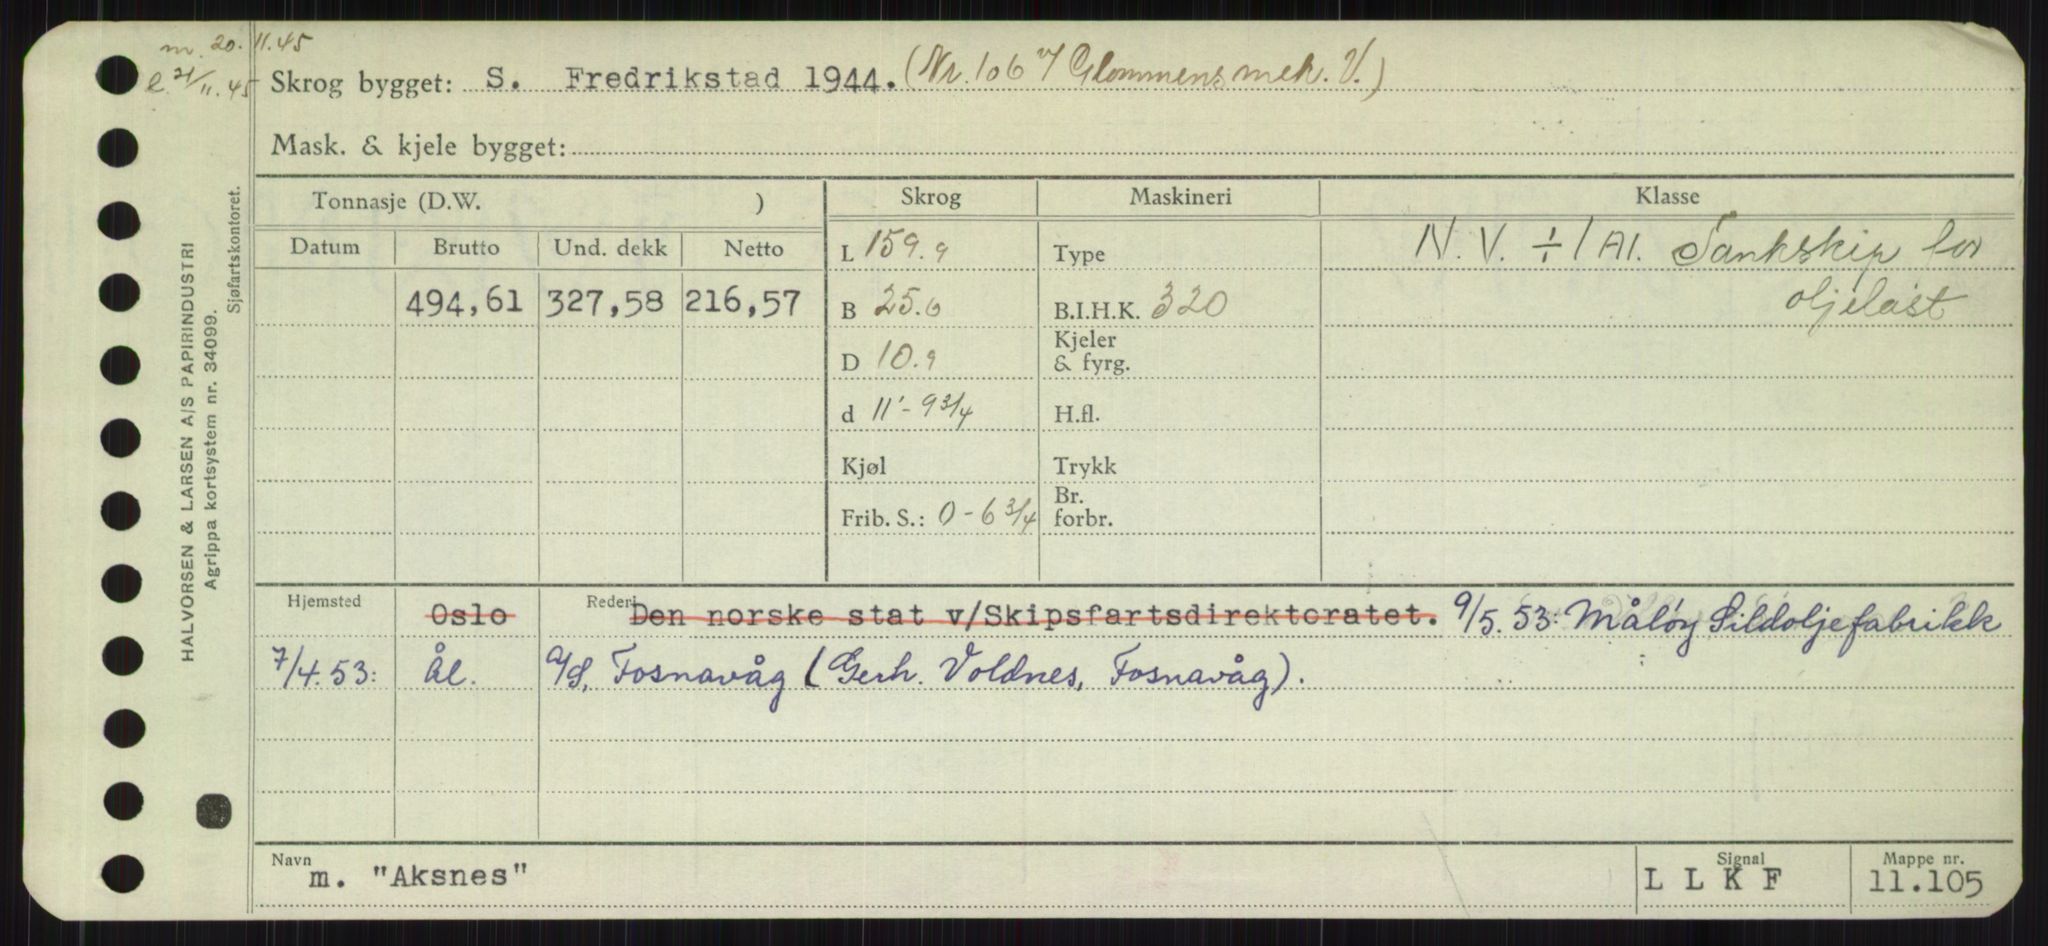 m. 20.11.45
e. 21/11.45
Skrog bygget: S. Fredrikstad 1944. (Nr. 106 v/ Glommens mek. V.)
Mask. & kjele bygget:
Tonnasje (D.W. ) Skrog Maskineri Klasse
Datum Brutto Und. dekk Netto L 159.9 Type N. V. ÷ 1 A1. Tankskip for
494,61 327,58 216,57 B 25.0 B.I.H.K. 320 oljelast
D 10.9 Kjeler & fyrg.
d 11'-9 3/4 H.fl.
Kjøl Trykk
Frib. S.: 0-6 3/4 Br. forbr.
Hjemsted Oslo Rederi Den norske stat v/Skipsfartsdirektoratet. 9/5.53: Måløy Sildoljefabrikk
7/4.53: Ål. A/S, Fosnavåg (Gerh. Voldnes, Fosnavåg).
Navn m. "Aksnes" Signal L L K F Mappe nr. 11.105
HALVORSEN & LARSEN A/S PAPIRINDUSTRI
Agrippa kortsystem nr. 34099.
Sjøfartskontoret.